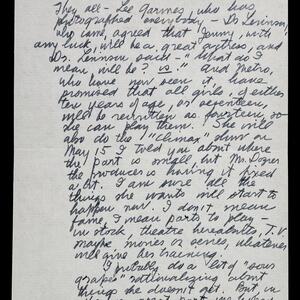 They all - Lee Garmes, who has
photographed everybody - Dr. Levinson,
who came, agreed that Jenny, with
any luck, will be a great actress, and
Dr. Levinson said - "What do I
mean will be? is." And Metro,
who have now seen it, have
promised that all girls, of either
ten years of age, or seventeen,
will be rewritten as fourteen, so
she can play them. She will
also do the "Climax" show on
May 15 I told you about where
the part is small, but Mr.
the producer is having it fixed
a bit. I am sure all the
things she wants will start to
happen now. I don't mean
fame, I mean parts to play -
in stock, theatre hereabouts, T.V.
maybe, movies or series, whatever
will give her training.
I probably do a lot of "sour
grapes" rationalizing about
things she doesn't get. But, in